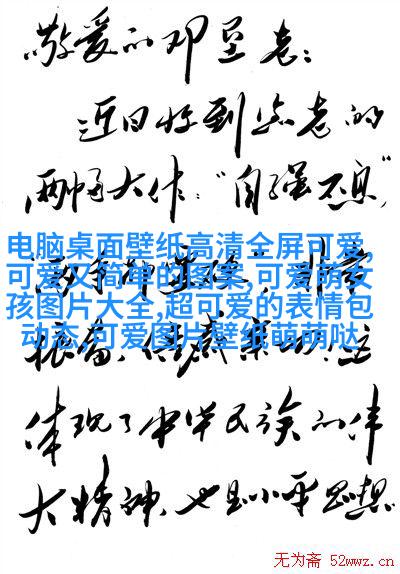 敬爱的邓垦老：
近日收到您老的
两幅大作："自强不息"
电脑桌面壁纸高清全屏可爱,
可爱又简单的图案,可爱萌女
孩图片大全,超可爱的表情包
动态,可爱图片壁纸萌萌哒
体现了中华民族的伟
大精神,也是小平思想
无为斋 52wwz.cn